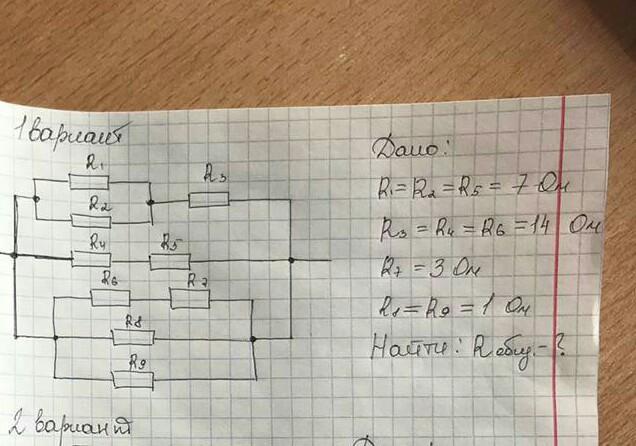 1 вариант
R1
R3
R2
R4
R5
R6
R7
R8
R9
Дано:
R1 = R2 = R5 = 7 Ом
R3 = R4 = R6 = 14 Ом
R7 = 3 Ом
R8 = R9 = 1 Ом
Найти: Rобщ. - ?
2 вариант